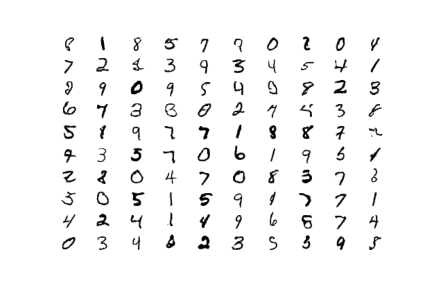 8 1 8 5 7 9 0 2 0 4
7 2 1 3 9 3 4 5 4 1
9 9 0 9 5 4 9 8 2 3
6 7 3 3 0 2 7 4 3 8
5 1 9 7 7 1 8 8 7 2
9 3 5 7 0 6 1 9 5 1
2 8 0 4 7 0 8 3 7 8
5 0 5 1 5 9 1 7 7 1
4 2 4 1 9 9 6 8 7 4
0 3 4 8 2 3 5 3 9 8